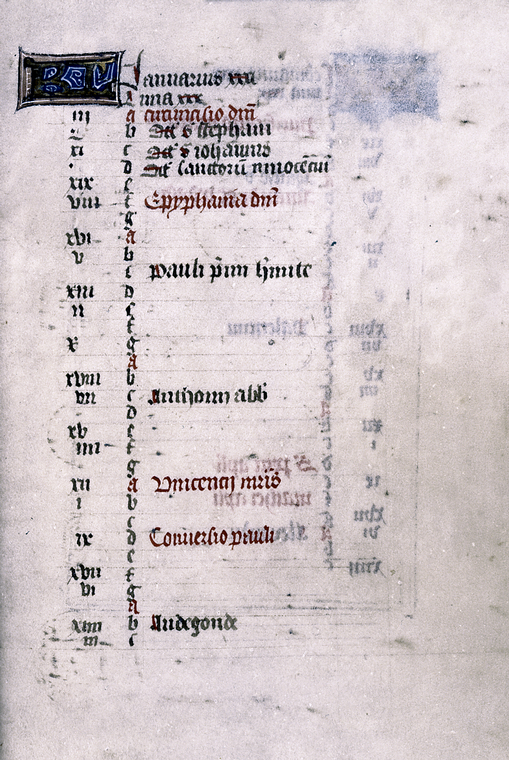 Januarius xxxi
luna xxx
iii a circumcisio dni
b Oct s stephani
xi c Oct s iohannis
d Oct sanctoru innocenciu
xix e
viii f Epyphania dni
g
xvi a
v b
c pauli prim hmite
xiii d
ii e
f
x g
a
xviii b
vii c Anthonii abb
d
xv e
iiii f
g
xii a Vincencij mris
i b
c
ix d Conuersio pauli
e
xvii f
vi g
a
xiiii b Audegonde
iii c